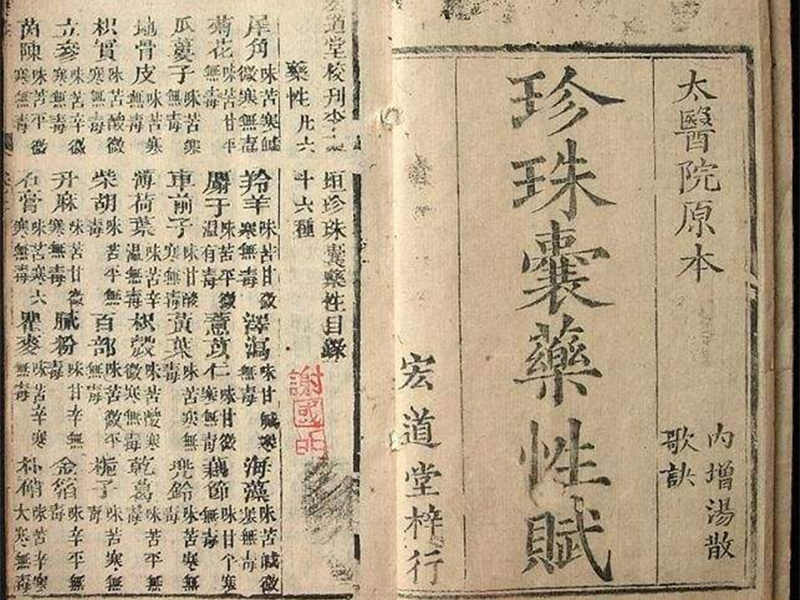 太醫院原本
內增湯散
歌訣
珍珠囊藥性賦
宏道堂梓行
道堂校刊李 垣珍珠囊藥性目錄
藥性凡六十六種
犀角 味苦寒鹹微寒無毒 羚羊 味苦甘微寒無毒 澤瀉 味甘鹹寒無毒 海藻 味苦鹹微寒無毒
菊花 味苦甘平無毒 味苦平微溫有毒 薏苡仁 味甘微寒無毒 藕節 味甘 寒無毒
瓜蔞子 味苦寒無毒 車前子 味甘酸寒無毒 黃葉 味苦寒無毒 兜鈴 味苦寒無毒
地骨皮 味苦寒無毒 薄荷葉 味苦辛溫無毒 枳殼 味苦酸微寒無毒 乾葛 味苦平無毒
枳實 味苦酸微寒無毒 柴胡 味苦平無毒 百部 味苦微平無毒 梔子 味苦寒無毒
立參 味苦微寒無毒 升麻 味苦甘微寒無毒 膩粉 味甘辛無毒 金箔 味辛平無毒
茵陳 味苦平微寒無毒 石膏 味苦寒六寒無毒 瞿麥 味苦辛寒無毒 朴硝 味苦辛大寒無毒
謝國